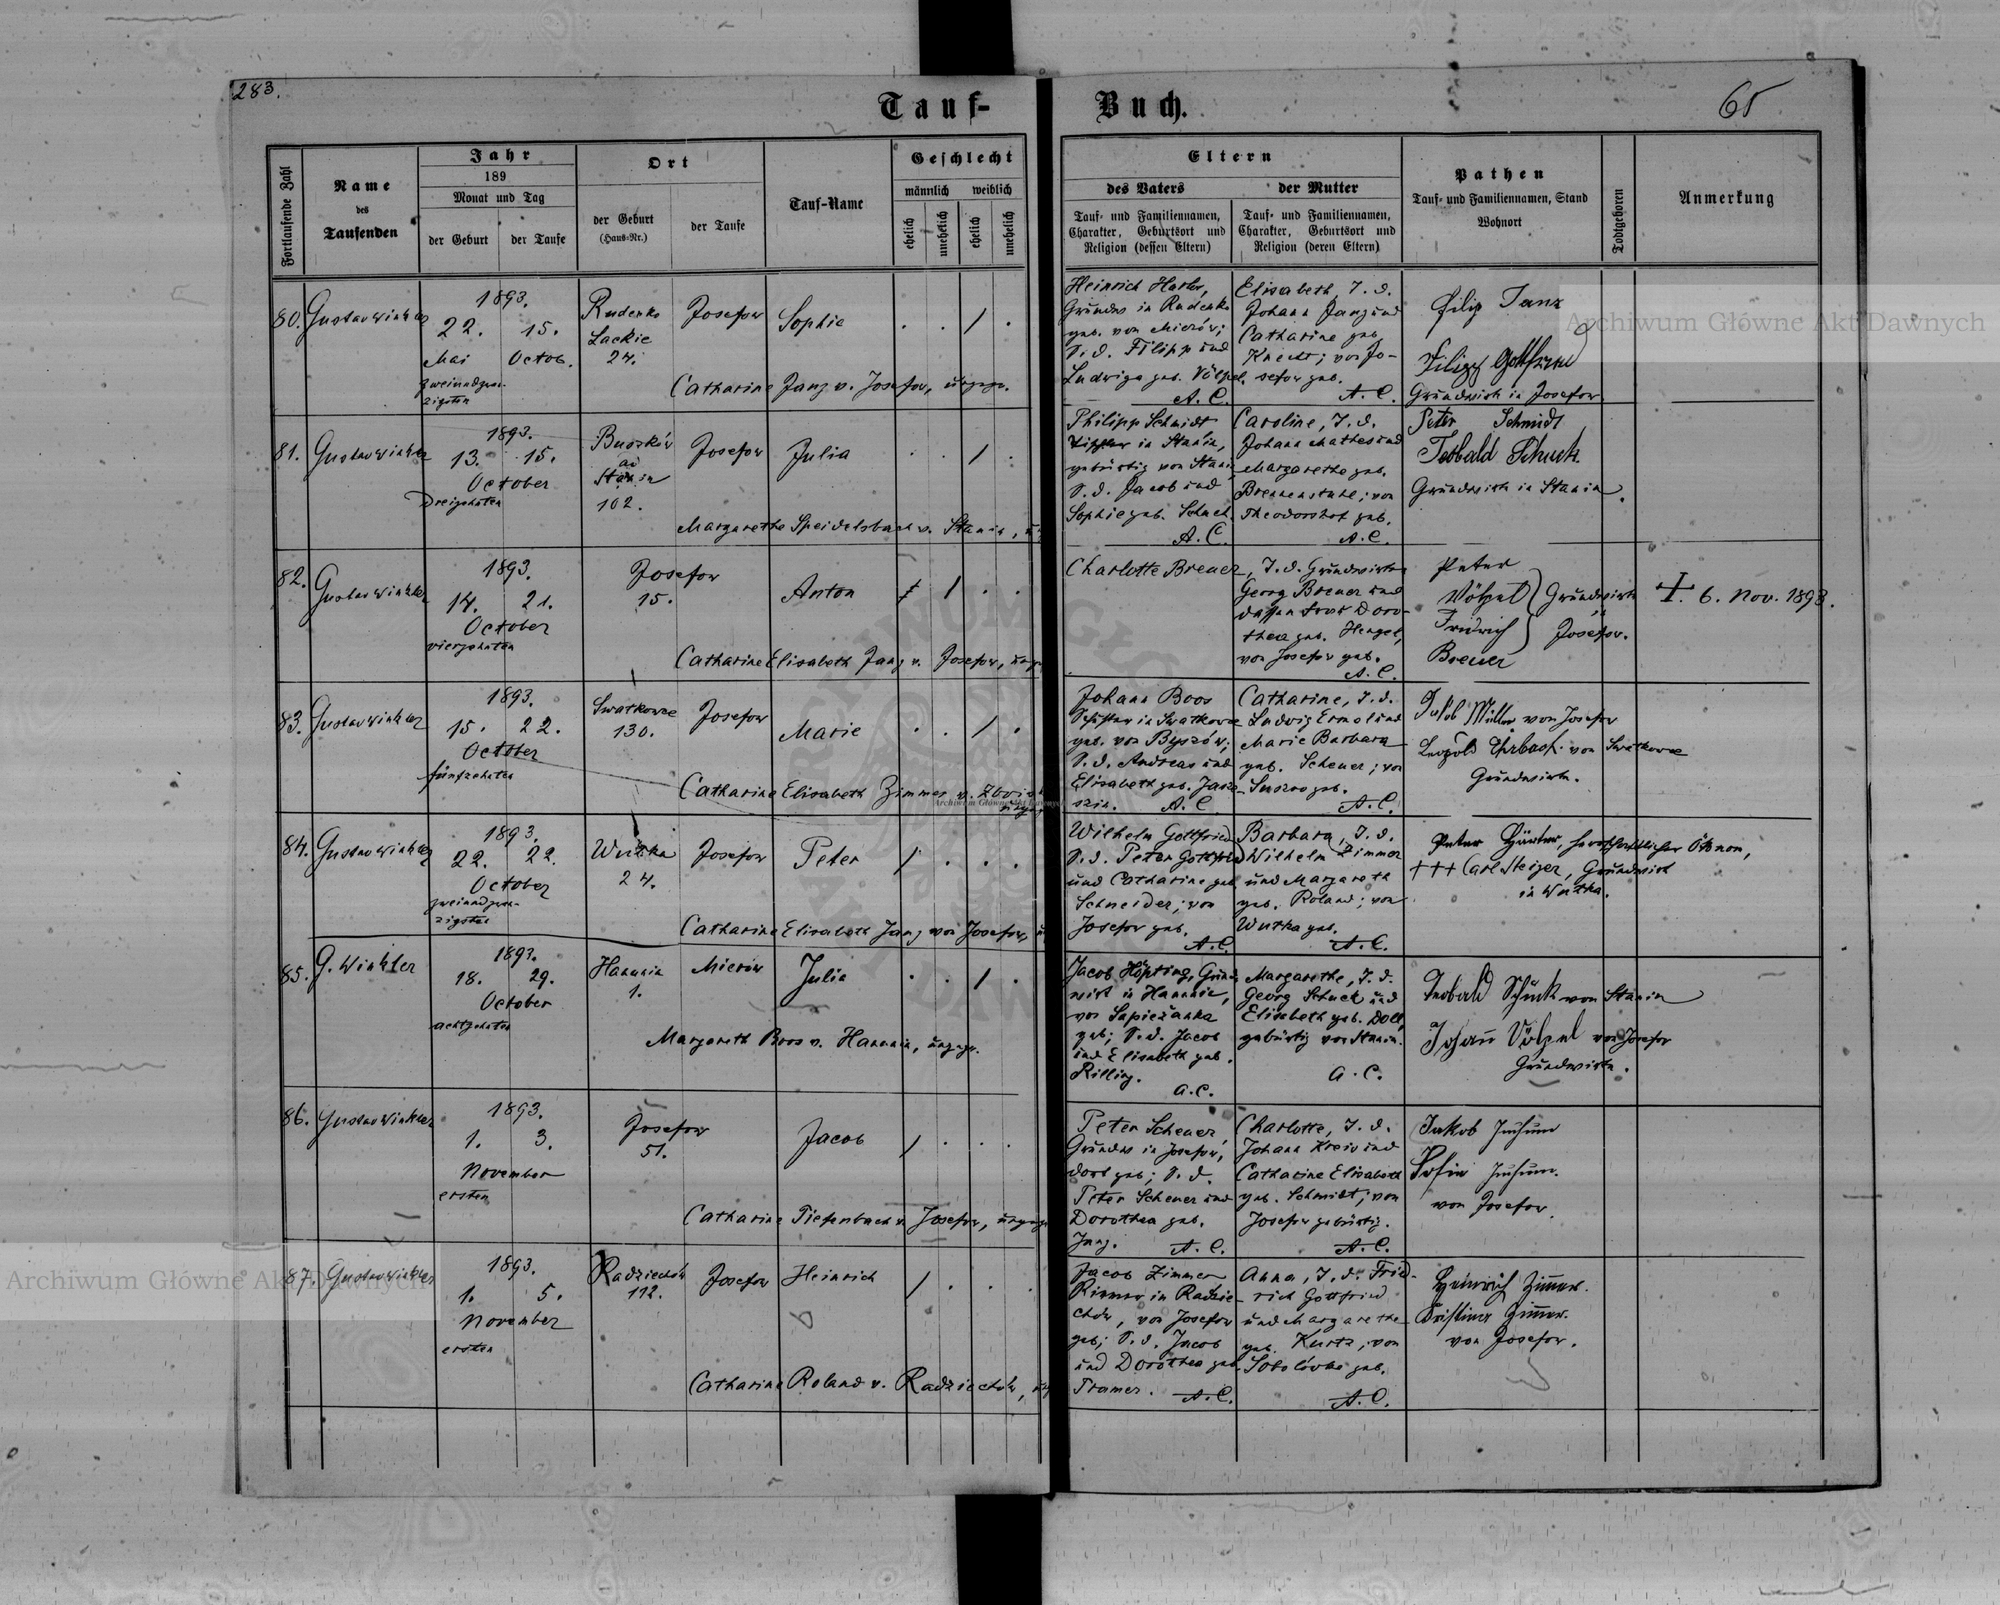 283.
Tauf-
Buch.
65
Fortlaufende Zahl
Name
des
Taufenden
Jahr
189
Monat und Tag
der Geburt
der Taufe
Ort
der Geburt
(Haus-Nr.)
der Taufe
Tauf-Name
Geschlecht
männlich
weiblich
ehelich
unehelich
ehelich
unehelich
Eltern
des Vaters
der Mutter
Tauf- und Familiennamen,
Charakter, Geburtsort und
Religion (dessen Eltern)
Tauf- und Familiennamen,
Charakter, Geburtsort und
Religion (deren Eltern)
Pathen
Tauf- und Familiennamen, Stand
Wohnort
Todtgeboren
Anmerkung
80.
Gustav Winkler
1893.
22. 15.
Mai Octob.
zweiundzwan-
zigsten
Rudenko
Lackie
24.
Josefow
Sophie
Catharine Janz v. Josefow,
Heinrich
in Rudenko
geb. von Mierów;
S. d. Filipp und
Ludwiga geb. Völpel.
A. C.
Elisabeth, T. d.
Johann Janz und
Catharine geb.
Knecht; von Jo-
sefow geb.
A. C.
Filip Janz
Filipp Gottfried
Grundwirth in Josefow
81.
Gustav Winkler
1893.
13. 15.
October
Dreizehnten
Buszków
ad
Stanin
102.
Josefow
Julia
Margarethe Speidelsbach v. Stanin,
Philipp Schmidt
in Stanin,
gebürtig von Stanin
S. d. Jacob und
Sophie geb. Schuck.
A. C.
Caroline, T. d.
Johann Mattes und
Margarethe geb.
Brennenstuhl; von
Theodorshof geb.
A. C.
Peter Schmidt
Teobald Schuck
Grundwirth in Stanin.
82.
Gustav Winkler
1893.
14. 21.
October
vierzehnten
Josefow
15.
Anton
Catharine Elisabeth Janz v. Josefow,
Charlotte Breuer, T. d. Grundwirths
Georg Breuer und
dessen Frau Doro-
thea geb. Hengel,
von Josefow geb.
A. C.
Peter
Völpel
Fridrich
Breuer
Grundwirth
in
Josefow.
6. Nov. 1893.
83.
Gustav Winkler
1893.
15. 22.
October
fünfzehnten
Swatkowce
130.
Josefow
Marie
Catharine Elisabeth Zimmer v.
Johann Boos
in Swatkowce
geb. von Byszów;
S. d. Andreas und
Elisabeth geb.
A. C.
Catharine, T. d.
Ludwig Ermel und
Marie Barbara
geb. Scheuer; von
Suszno geb.
A. C.
Jakob Müller von Josefow
Leopold Ehrbach von Swatkowce
Grundwirthe.
84.
Gustav Winkler
1893.
22. 22.
October
zweiundzwan-
zigsten
Wutka
24.
Josefow
Peter
Catharine Elisabeth Janz von Josefow,
Wilhelm Gottfried
S. d. Peter Gottfried
und Catharine geb.
Schneider; von
Josefow geb.
A. C.
Barbara, T. d.
Wilhelm Zimmer
und Margareth
geb. Roland; von
Wutka geb.
A. C.
Peter Härter, herrschaftlicher Ökonom,
+++ Carl Steizer, Grundwirt
in Wutka.
85.
G. Winkler
1893.
18. 29.
October
achtzehnten
Hanunin
1.
Mierów
Julia
Margareth Boos v. Hanunin,
Jacob Höpting, Grund-
wirt in Hanunin,
von Sapiezanka
geb; S. d. Jacob
und Elisabeth geb.
Rilling.
A. C.
Margarethe, T. d.
Georg Schuck und
Elisabeth geb. Doll,
gebürtig von Stanin.
A. C.
Teobald Schuck von Stanin
Johann Völpel von Josefow
Grundwirthe.
86.
Gustav Winkler
1893.
1. 3.
November
ersten
Josefow
51.
Jacob
Catharine Tiefenbach v. Josefow,
Peter Scheuer,
Grundw in Josefow,
dort geb; S. d.
Peter Scheuer und
Dorothea geb.
Janz.
A. C.
Charlotte, T. d.
Johann Kreiv und
Catharine Elisabeth
geb. Schmidt; von
Josefow gebürtig.
A. C.
Jakob
Sofia
von Josefow.
87.
Gustav Winkler
1893.
1. 5.
November
ersten
Radziechów
112.
Josefow
Heinrich
Catharine Roland v. Radziechów,
Jacob Zimmer
Riemer in Radzie-
chów, von Josefow
geb; S. d. Jacob
und Dorothea geb.
Tramer.
A. C.
Anna, T. d. Frid-
rich Gottfried
und Margarethe
geb. Kurtz; von
Sobolówka geb.
A. C.
Heinrich Zimmer.
Kristina Zimmer.
von Josefow.
Archiwum Główne Akt Dawnych
Archiwum Główne Akt Dawnych
Archiwum Główne Akt Dawnych